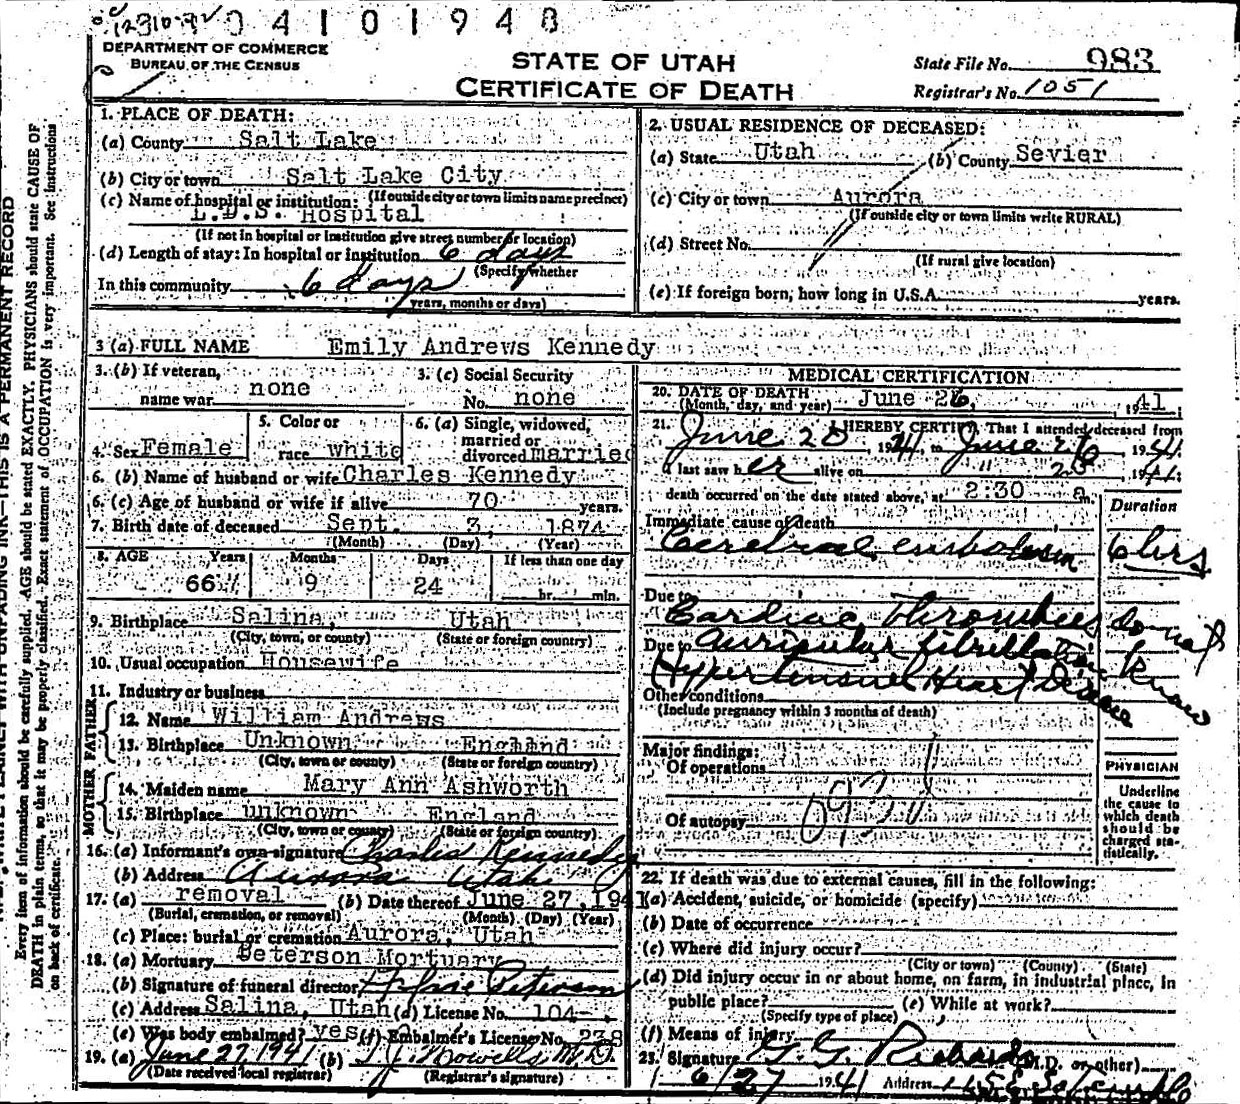 04101948
DEPARTMENT OF COMMERCE
BUREAU OF THE CENSUS
STATE OF UTAH
CERTIFICATE OF DEATH
State File No. 983
Registrar's No. 1051
1. PLACE OF DEATH:
(a) County Salt Lake
(b) City or town Salt Lake City
(If outside city or town limits name precinct)
(c) Name of hospital or institution:
L.D.S. Hospital
(If not in hospital or institution give street number or location)
(d) Length of stay: In hospital or institution 6 days
(Specify whether
In this community 6 days
years, months or days)
2. USUAL RESIDENCE OF DECEASED:
(a) State Utah (b) County Sevier
(c) City or town Aurora
(If outside city or town limits write RURAL)
(d) Street No.
(If rural give location)
(e) If foreign born, how long in U.S.A. years.
3 (a) FULL NAME Emily Andrews Kennedy
3. (b) If veteran, name war none
3. (c) Social Security No. none
4. Sex Female
5. Color or race white
6. (a) Single, widowed, married or divorced married
6. (b) Name of husband or wife Charles Kennedy
6. (c) Age of husband or wife if alive 70 years.
7. Birth date of deceased Sept. 3, 1874
(Month) (Day) (Year)
8. AGE Years Months Days If less than one day
66 9 24 hr. min.
9. Birthplace Salina, Utah
(City, town, or county) (State or foreign country)
10. Usual occupation Housewife
11. Industry or business
FATHER
12. Name William Andrews
13. Birthplace Unknown England
(City, town or county) (State or foreign country)
MOTHER
14. Maiden name Mary Ann Ashworth
15. Birthplace unknown England
(City, town or county) (State or foreign country)
16. (a) Informant's own signature Charles Kennedy
(b) Address Aurora Utah
17. (a) removal (b) Date thereof June 27, 194
(Burial, cremation, or removal) (Month) (Day) (Year)
(c) Place: burial or cremation Aurora, Utah
18. (a) Mortuary Peterson Mortuary
(b) Signature of funeral director Peterson
(c) Address Salina, Utah (d) License No. 104
(e) Was body embalmed? yes (f) Embalmer's License No. 238
19. (a) June 27, 1941 (b) M.D.
(Date received local registrar) (Registrar's signature)
MEDICAL CERTIFICATION
20. DATE OF DEATH
(Month, day, and year) June 26, 1941
21. I HEREBY CERTIFY, That I attended deceased from
June 20, 1941, to June 26, 1941
I last saw her alive on " 1941
death occurred on the date stated above, at 2:30 a.
Duration
Immediate cause of death
Cerebral embolism 6 hrs
Due to
Cardiac thrombus do not
Due to Auricular fibrillation know
Hypertensive Heart Disease
Other conditions
(Include pregnancy within 3 months of death)
Major findings:
Of operations
Of autopsy
PHYSICIAN
Underline the cause to which death should be charged statistically.
22. If death was due to external causes, fill in the following:
(a) Accident, suicide, or homicide (specify)
(b) Date of occurrence
(c) Where did injury occur?
(City or town) (County) (State)
(d) Did injury occur in or about home, on farm, in industrial place, in
public place? (e) While at work?
(Specify type of place)
(f) Means of injury
23. Signature G. G. Richards (M.D. or other)
6/27 1941 Address
THIS IS A PERMANENT RECORD
Every item of information should be carefully supplied. AGE should be stated EXACTLY. PHYSICIANS should state CAUSE OF
DEATH in plain terms, so that it may be properly classified. Exact statement of OCCUPATION is very important. See instructions
on back of certificate.